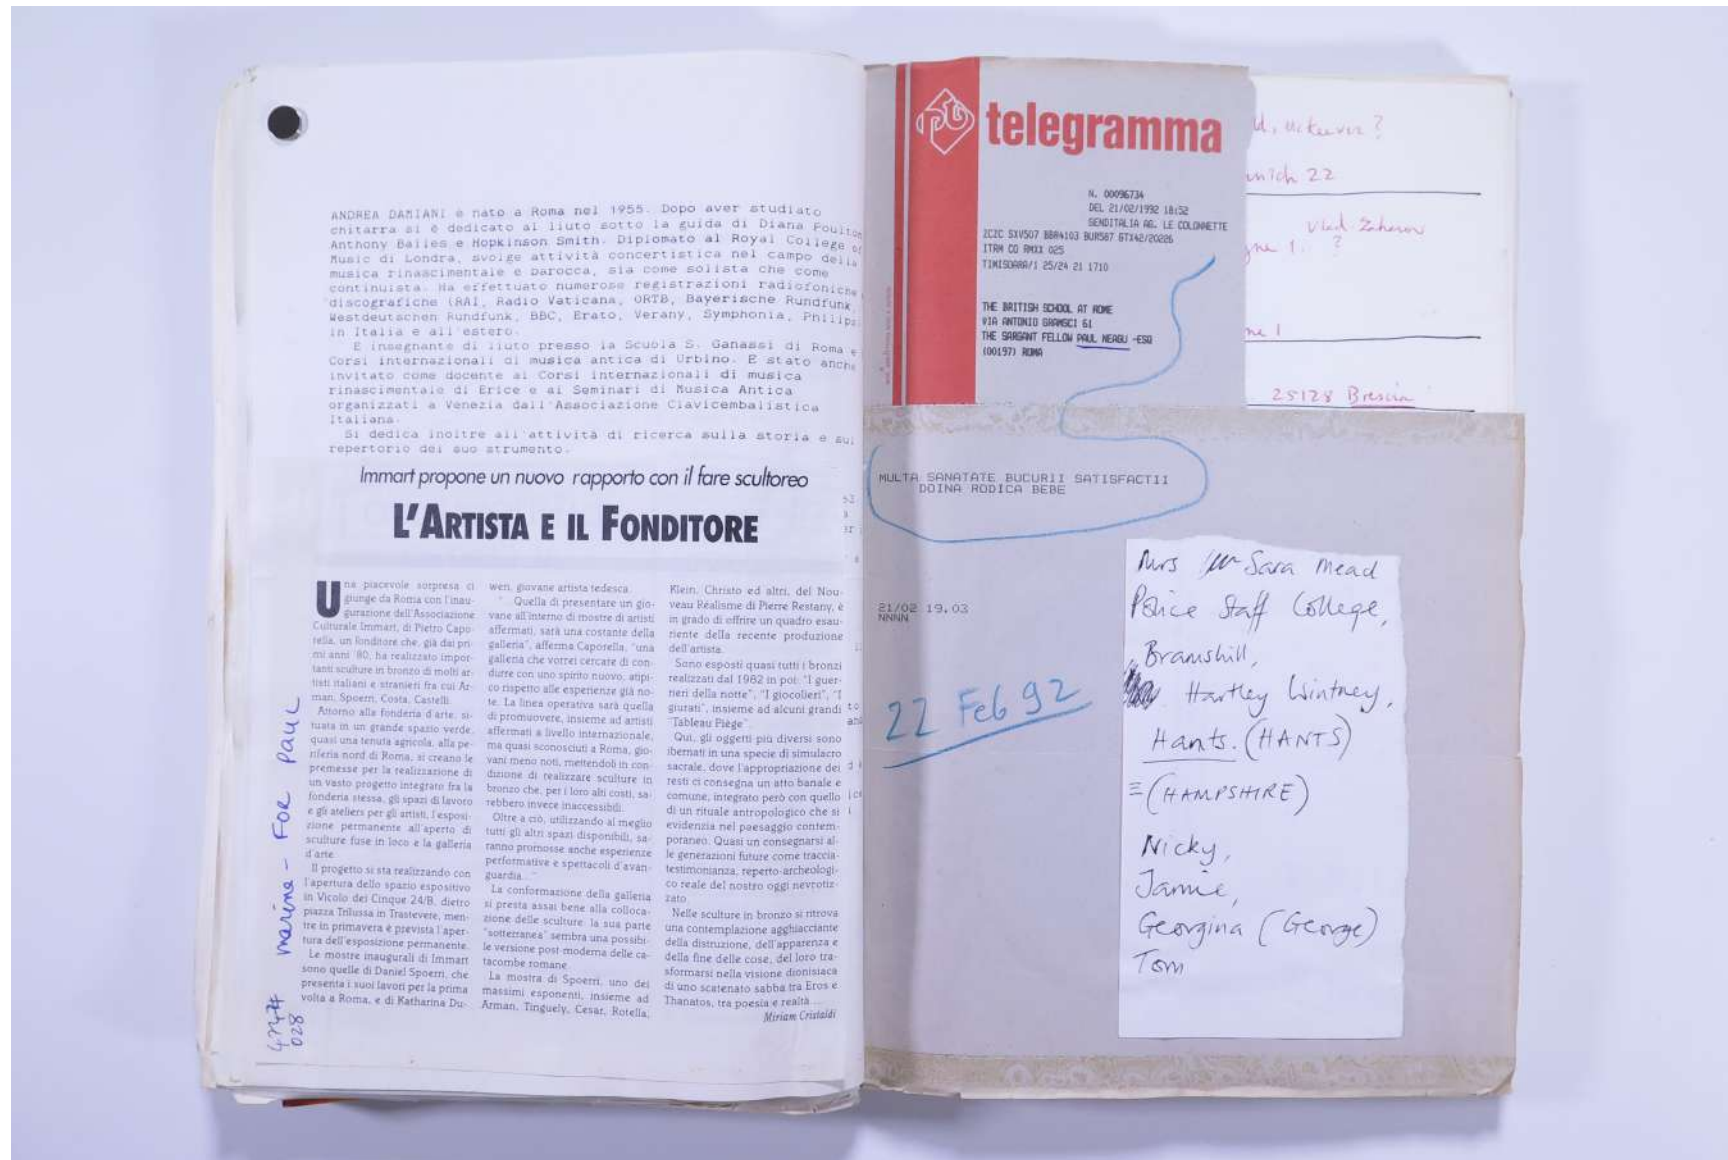 ANDREA DAMIANI è nato a Roma nel 1955. Dopo aver studiato
chitarra si è dedicato al liuto sotto la guida di Diana Poulton
Anthony Bailes e Hopkinson Smith. Diplomato al Royal College of
Music di Londra, svolge attività concertistica nel campo della
musica rinascimentale e barocca, sia come solista che come
continuista. Ha effettuato numerose registrazioni radiofoniche
discografiche (RAI, Radio Vaticana, ORTB, Bayerische Rundfunk,
Westdeutschen Rundfunk, BBC, Erato, Verany, Symphonia, Philips
in Italia e all'estero.
E insegnante di liuto presso la Scuola S. Ganassi di Roma e
Corsi internazionali di musica antica di Urbino. E stato anche
invitato come docente ai Corsi internazionali di musica
rinascimentale di Erice e ai Seminari di Musica Antica
organizzati a Venezia dall'Associazione Clavicembalistica
Italiana.
Si dedica inoltre all'attività di ricerca sulla storia e sul
repertorio del suo strumento.
Immart propone un nuovo rapporto con il fare scultoreo
L'ARTISTA E IL FONDITORE
Una piacevole sorpresa ci
giunge da Roma con l'inau-
gurazione dell'Associazione
Culturale Immart, di Pietro Capo-
rella, un fonditore che, già dai pri-
mi anni '80, ha realizzato impor-
tanti sculture in bronzo di molti ar-
tisti italiani e stranieri fra cui Ar-
man, Spoerri, Costa, Castelli.
Attorno alla fonderia d'arte, si-
tuata in un grande spazio verde,
quasi una tenuta agricola, alla pe-
riferia nord di Roma, si creano le
premesse per la realizzazione di
un vasto progetto integrato fra la
fonderia stessa, gli spazi di lavoro
e gli ateliers per gli artisti, l'esposi-
zione permanente all'aperto di
sculture fuse in loco e la galleria
d'arte.
Il progetto si sta realizzando con
l'apertura dello spazio espositivo
in Vicolo dei Cinque 24/B, dietro
piazza Trilussa in Trastevere, men-
tre in primavera è prevista l'aper-
tura dell'esposizione permanente.
Le mostre inaugurali di Immart
sono quelle di Daniel Spoerri, che
presenta i suoi lavori per la prima
volta a Roma, e di Katharina Du-
wen, giovane artista tedesca.
"Quella di presentare un gio-
vane all'interno di mostre di artisti
affermati, sarà una costante della
galleria", afferma Caporella, "una
galleria che vorrei cercare di con-
durre con uno spirito nuovo, atipi-
co rispetto alle esperienze già no-
te. La linea operativa sarà quella
di promuovere, insieme ad artisti
affermati a livello internazionale,
ma quasi sconosciuti a Roma, gio-
vani meno noti, mettendoli in con-
dizione di realizzare sculture in
bronzo che, per i loro alti costi, sa-
rebbero invece inaccessibili.
Oltre a ciò, utilizzando al meglio
tutti gli altri spazi disponibili, sa-
ranno promosse anche esperienze
performative e spettacoli d'avan-
guardia..."
La conformazione della galleria
si presta assai bene alla colloca-
zione delle sculture: la sua parte
"sotterranea" sembra una possibi-
le versione post-moderna delle ca-
tacombe romane.
La mostra di Spoerri, uno dei
massimi esponenti, insieme ad
Arman, Tinguely, Cesar, Rotella,
Klein, Christo ed altri, del Nou-
veau Réalisme di Pierre Restany, è
in grado di offrire un quadro esau-
riente della recente produzione
dell'artista.
Sono esposti quasi tutti i bronzi
realizzati dal 1982 in poi: "I guer-
rieri della notte", "I giocolieri", "I
giurati", insieme ad alcuni grandi
"Tableau Piège".
Qui, gli oggetti più diversi sono
ibernati in una specie di simulacro
sacrale, dove l'appropriazione dei
resti ci consegna un atto banale e
comune, integrato però con quello
di un rituale antropologico che si
evidenzia nel paesaggio contem-
poraneo. Quasi un consegnarsi al-
le generazioni future come traccia-
testimonianza, reperto-archeologi-
co reale del nostro oggi nevrotiz-
zato.
Nelle sculture in bronzo si ritrova
una contemplazione agghiacciante
della distruzione, dell'apparenza e
della fine delle cose, del loro tra-
sformarsi nella visione dionisiaca
di uno scatenato sabba tra Eros e
Thanatos, tra poesia e realtà...
Miriam Cristaldi
marina - FOR PAUL
028
telegramma
N. 00096734
DEL 21/02/1992 18:52
SENDITALIA AG. LE COLONNETTE
ZCZC SXV507 BBA4103 BUR587 GT142/20226
ITRM CO RMXX 025
TIMISOARA/1 25/24 21 1710
THE BRITISH SCHOOL AT ROME
VIA ANTONIO GRAMSCI 61
THE SARGANT FELLOW PAUL NEAGU -ESQ
(00197) ROMA
nich 22
Vlad
ne 1. ?
ne 1
25128 Brescia
MULTA SANATATE BUCURII SATISFACTII
DOINA RODICA BEBE
21/02 19.03
NNNN
22 Feb 92
Mrs Sara Mead
Police Staff College,
Bramshill,
Hartley Wintney,
Hants. (HANTS)
≡ (HAMPSHIRE)
Nicky,
Jamie,
Georgina (George)
Tom